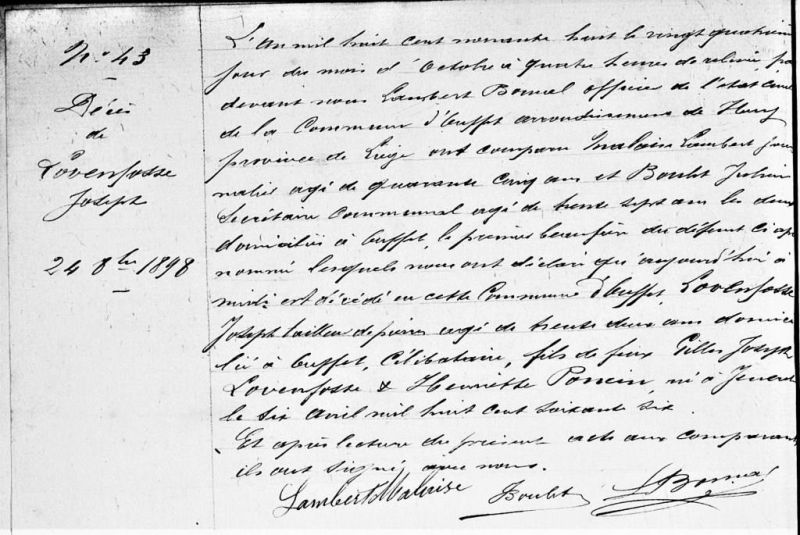 N° 43
Décès
de
Lovenfosse
Joseph
24 8bre 1898
L'an mil huit cent nonante huit le vingt quatrième
jour du mois d'Octobre à quatre heures de relevée par
devant nous Lambert officier de l'état civil
de la Commune d'Ouffet arrondissement de Huy
province de Liège ont comparu Malaise Lambert jour
nalier agé de quarante cinq ans et Boulet Julien
Secrétaire Communal agé de trente sept ans les deux
domiciliés à Ouffet, le premier beau frère du défunt ci après
nommé lesquels nous ont déclaré qu'aujourd'hui à
midi est décédé en cette Commune d'Ouffet Lovenfosse
Joseph tailleur de pierres agé de trente deux ans domici
lié à Ouffet, Célibataire, fils de feux Gilles Joseph
Lovenfosse & Henriette Poncin, né à
le six avril mil huit cent soixante six.
Et après lecture du présent acte aux comparants
ils ont signé avec nous.
Lambert Malaise Boulet